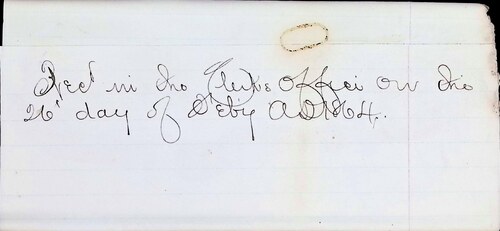 Rec'd in the Clerks Office on the
26' day of Feby AD 1864.